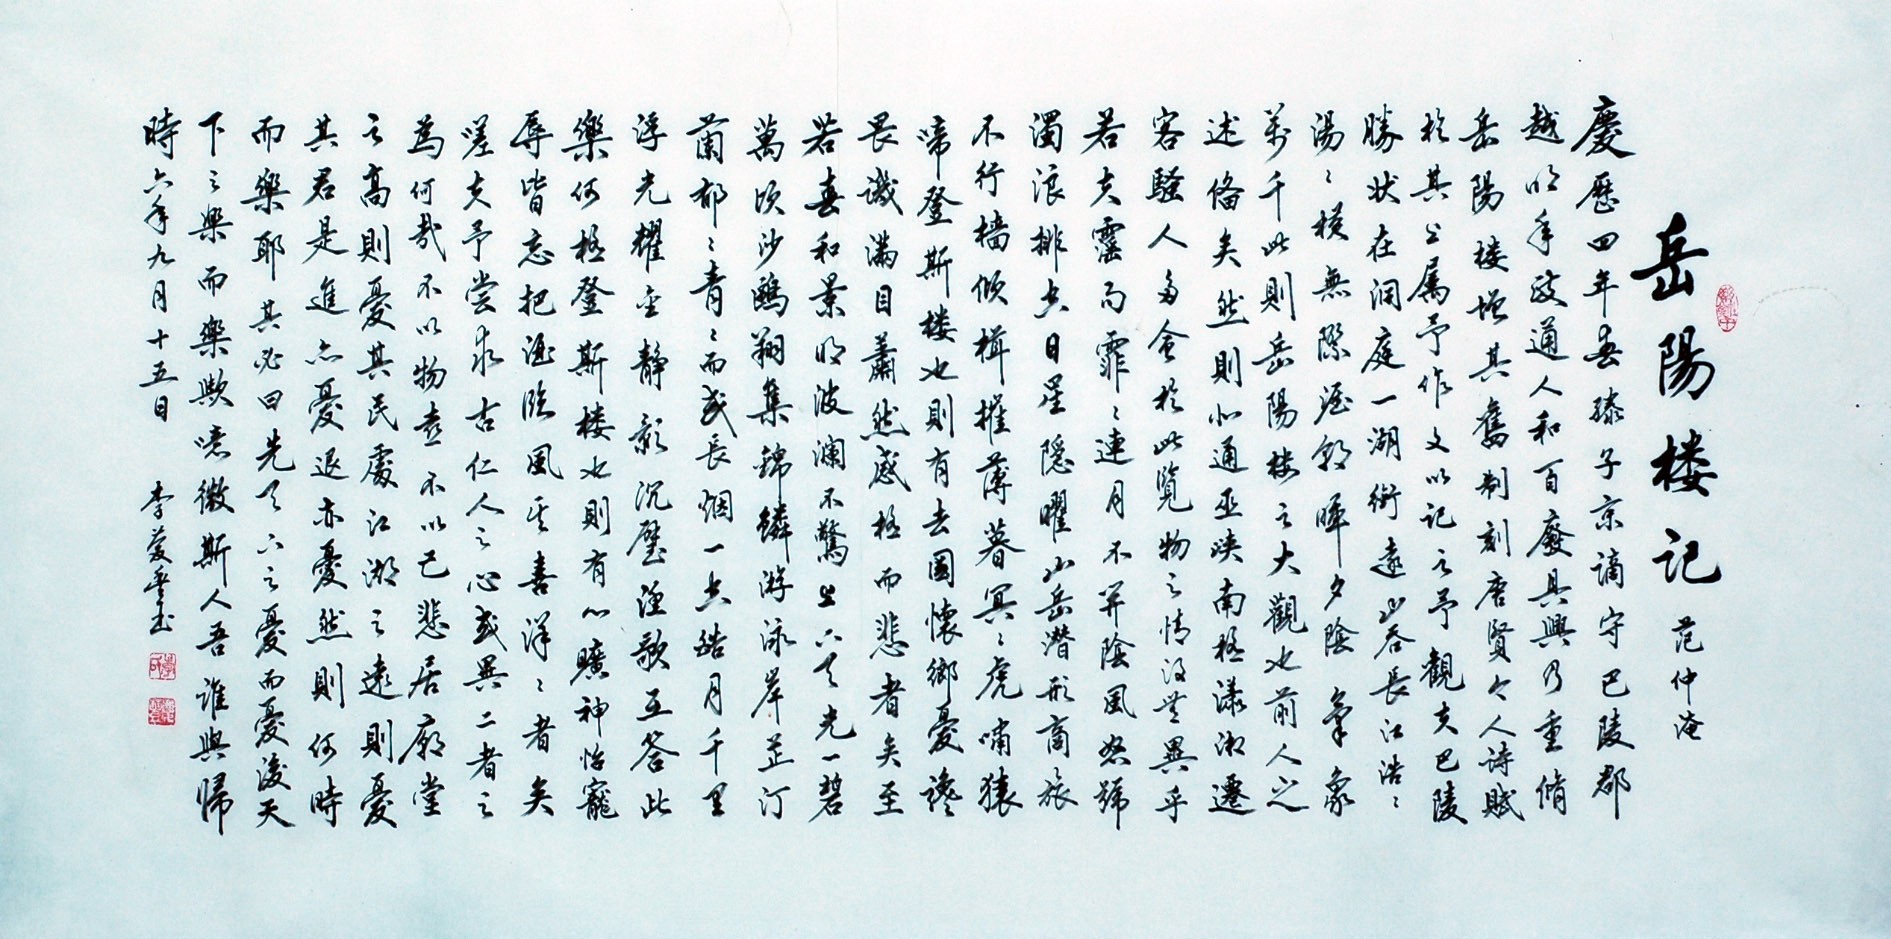 岳陽楼记 范仲淹
慶歷四年春滕子京謫守巴陵郡
越明年政通人和百廢具興乃重脩
岳陽楼增其舊制刻唐賢今人诗賦
於其上属予作文以记之予觀夫巴陵
勝状在洞庭一湖銜遠山吞長江浩〻
湯〻横無際涯朝暉夕陰氣象
萬千此則岳陽楼之大觀也前人之
述俻矣然則北通巫峡南極潇湘遷
客騷人多會於此覽物之情得無異乎
若夫霪雨霏〻連月不开陰風怒號
濁浪排空日星隱曜山岳潜形商旅
不行檣傾楫摧薄暮冥〻虎啸猿
啼登斯楼也則有去國懷鄉憂讒
畏譏满目蕭然感極而悲者矣至
若春和景明波澜不驚上下天光一碧
萬顷沙鷗翔集錦鱗游泳岸芷汀
蘭郁〻青〻而或長烟一空皓月千里
浮光耀金静影沉璧渔歌互答此
樂何極登斯楼也則有心曠神怡寵
辱皆忘把酒临風其喜洋〻者矣
嗟夫予嘗求古仁人之心或異二者之
為何哉不以物喜不以己悲居廟堂
之高則憂其民處江湖之遠則憂
其君是進亦憂退亦憂然則何時
而樂耶其必曰先天下之憂而憂後天
下之樂而樂歟噫微斯人吾誰與歸
時六年九月十五日 李爱